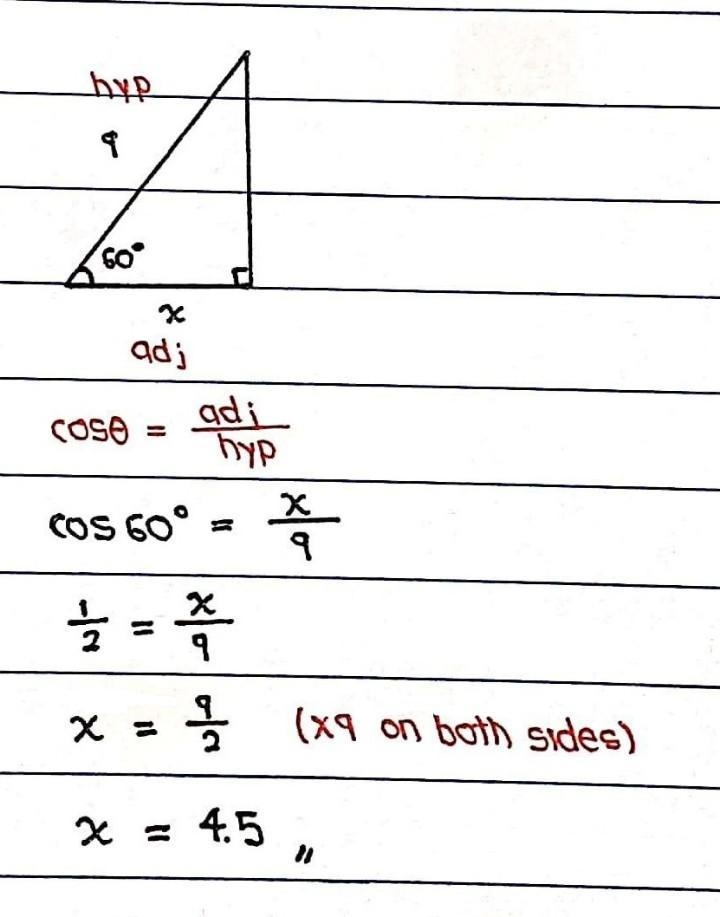 hyp
9
60°
x
adj
cosθ = adj/hyp
cos 60° = x/9
1/2 = x/9
x = 9/2 (x9 on both sides)
x = 4.5 „